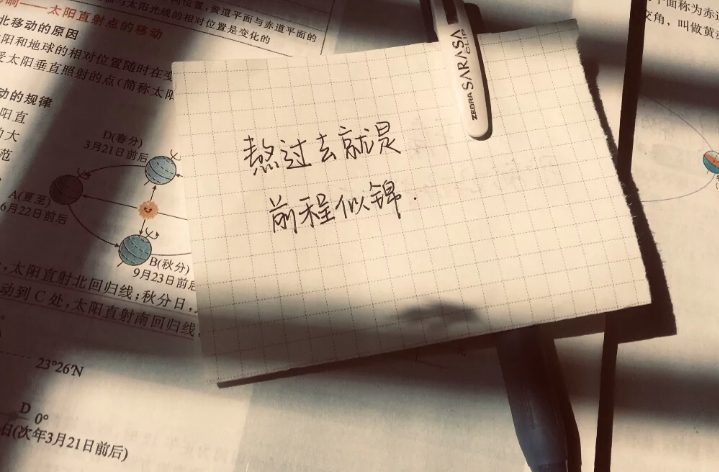 响——太阳直射点的移动
北移动的原因
阳和地球的相对位置随时在变
受太阳垂直照射的点(简称太阳
黄道平面与赤道平面的
与太阳光线的相对位置是变化的
动的规律
阳直
的大
范
D(春分)
3月21日前后
A(夏至)
6月22日前后
B(秋分)
9月23日前后
太阳直射北回归线;秋分日,
动到C处,太阳直射南回归线,
23°26′N
D
0°
日(次年3月21日前后)
熬过去就是
前程似锦.
ZEBRA SARASA CLIP
平面称为赤道
交角,叫做黄赤